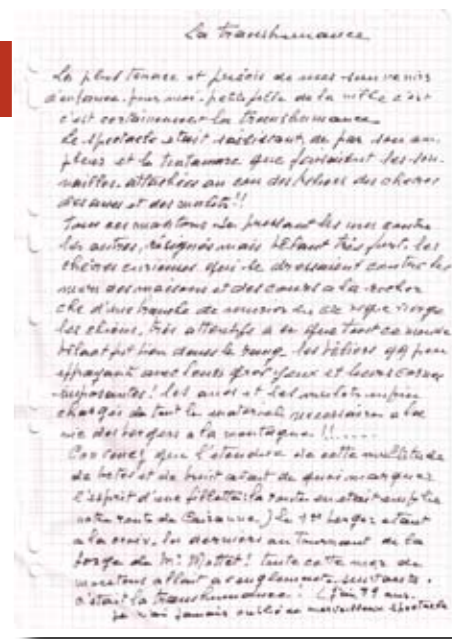 La transhumance
Le plus tenace et précis de mes souvenirs
d'enfance, pour moi, petite fille de la ville c'est
c'est certainement la transhumance.
Le spectacle était saisissant, de par son am
pleur et le tintamare que faisaient les son
nailles attachées au cou des béliers des chèvres
des anes et des mulets !!
Tous ces moutons se pressant les uns contre
les autres, résignés mais bêlant très fort. les
chèvres curieuses qui se dressaient contre les
murs des maisons et des cours a la recher
che d'une branche de murier ou de vierge
les chiens, très attentifs a ce que tout ce monde
 dans le rang. les béliers qq peu
effrayant avec leurs gros yeux et leurs cornes
imposantes ! les anes et les mulets enfin
chargés de tout le materiel necessaire a la
vie des bergers a la montagne !!.....
 que l'étendue de cette multitude
de betes et de bruit avait de quoi marquer
l'esprit d'une fillette : la route en était emplie
notre route de Cairanne ) le 1er berger etant
a la croix, les derniers au tournant de la
forge de Mr Mottet ! toute cette mer de
moutons allait
c'était la transhumance ! (j'ai 79 ans.
je n'ai jamais oublié ce merveilleux spectacle